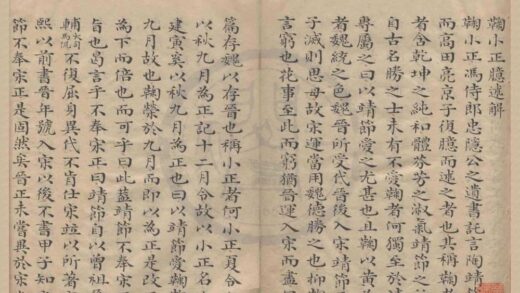 鞠小正臆逺解
鞠小正馮侍郎忠隱公之遺書託言陶靖
而高田亮京子復臆而逺之者也其稱鞠
者含乾坤之純和體芬芳之淑氣靖節之
自古名勝之士未有不愛鞠者何獨至於
專屬之曰以靖節愛之尤甚也且鞠以黄
者魏統之色魏晉所受代晉後入宋靖節
子滅則思母故宋運當用魏德勝之也抑
言窮也花事至此而窮猶晉運入宋而盡
篇存魏以存晉也稱小正者何小夏令
以秋九月為正記十二月令故以小正名
建寅奚以秋九月為正也曰以靖節愛鞠
九月故也鞠榮於九月而即以為正是改
為下而倍也而可乎曰此蓋靖節不奉宋
旨也曷言乎不奉宋正曰靖節自以曾祖
輔大司馬侃不復屈身異代不肯仕宋竝以所著
熙以前書晉年號入宋以後不書甲子知
節不奉宋正是固然矣晉正未嘗異於宋